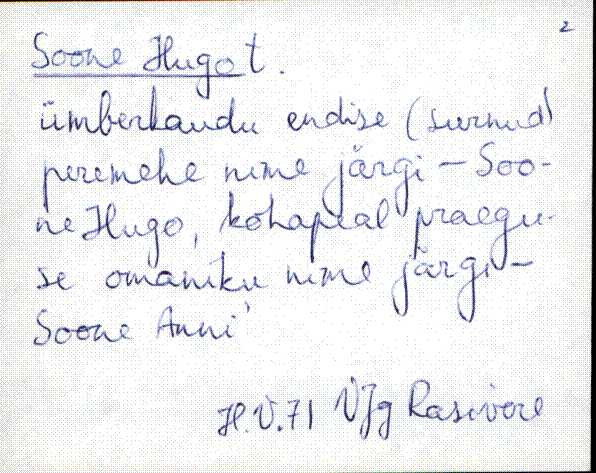 2
Soone Hugo t.
ümberkaudu endise (surnud)
peremehe nime järgi – Soo-
ne Hugo, kohapeal praegu-
se omaniku nime järgi –
Soone Anni
H.V.71 VJg Rasivere